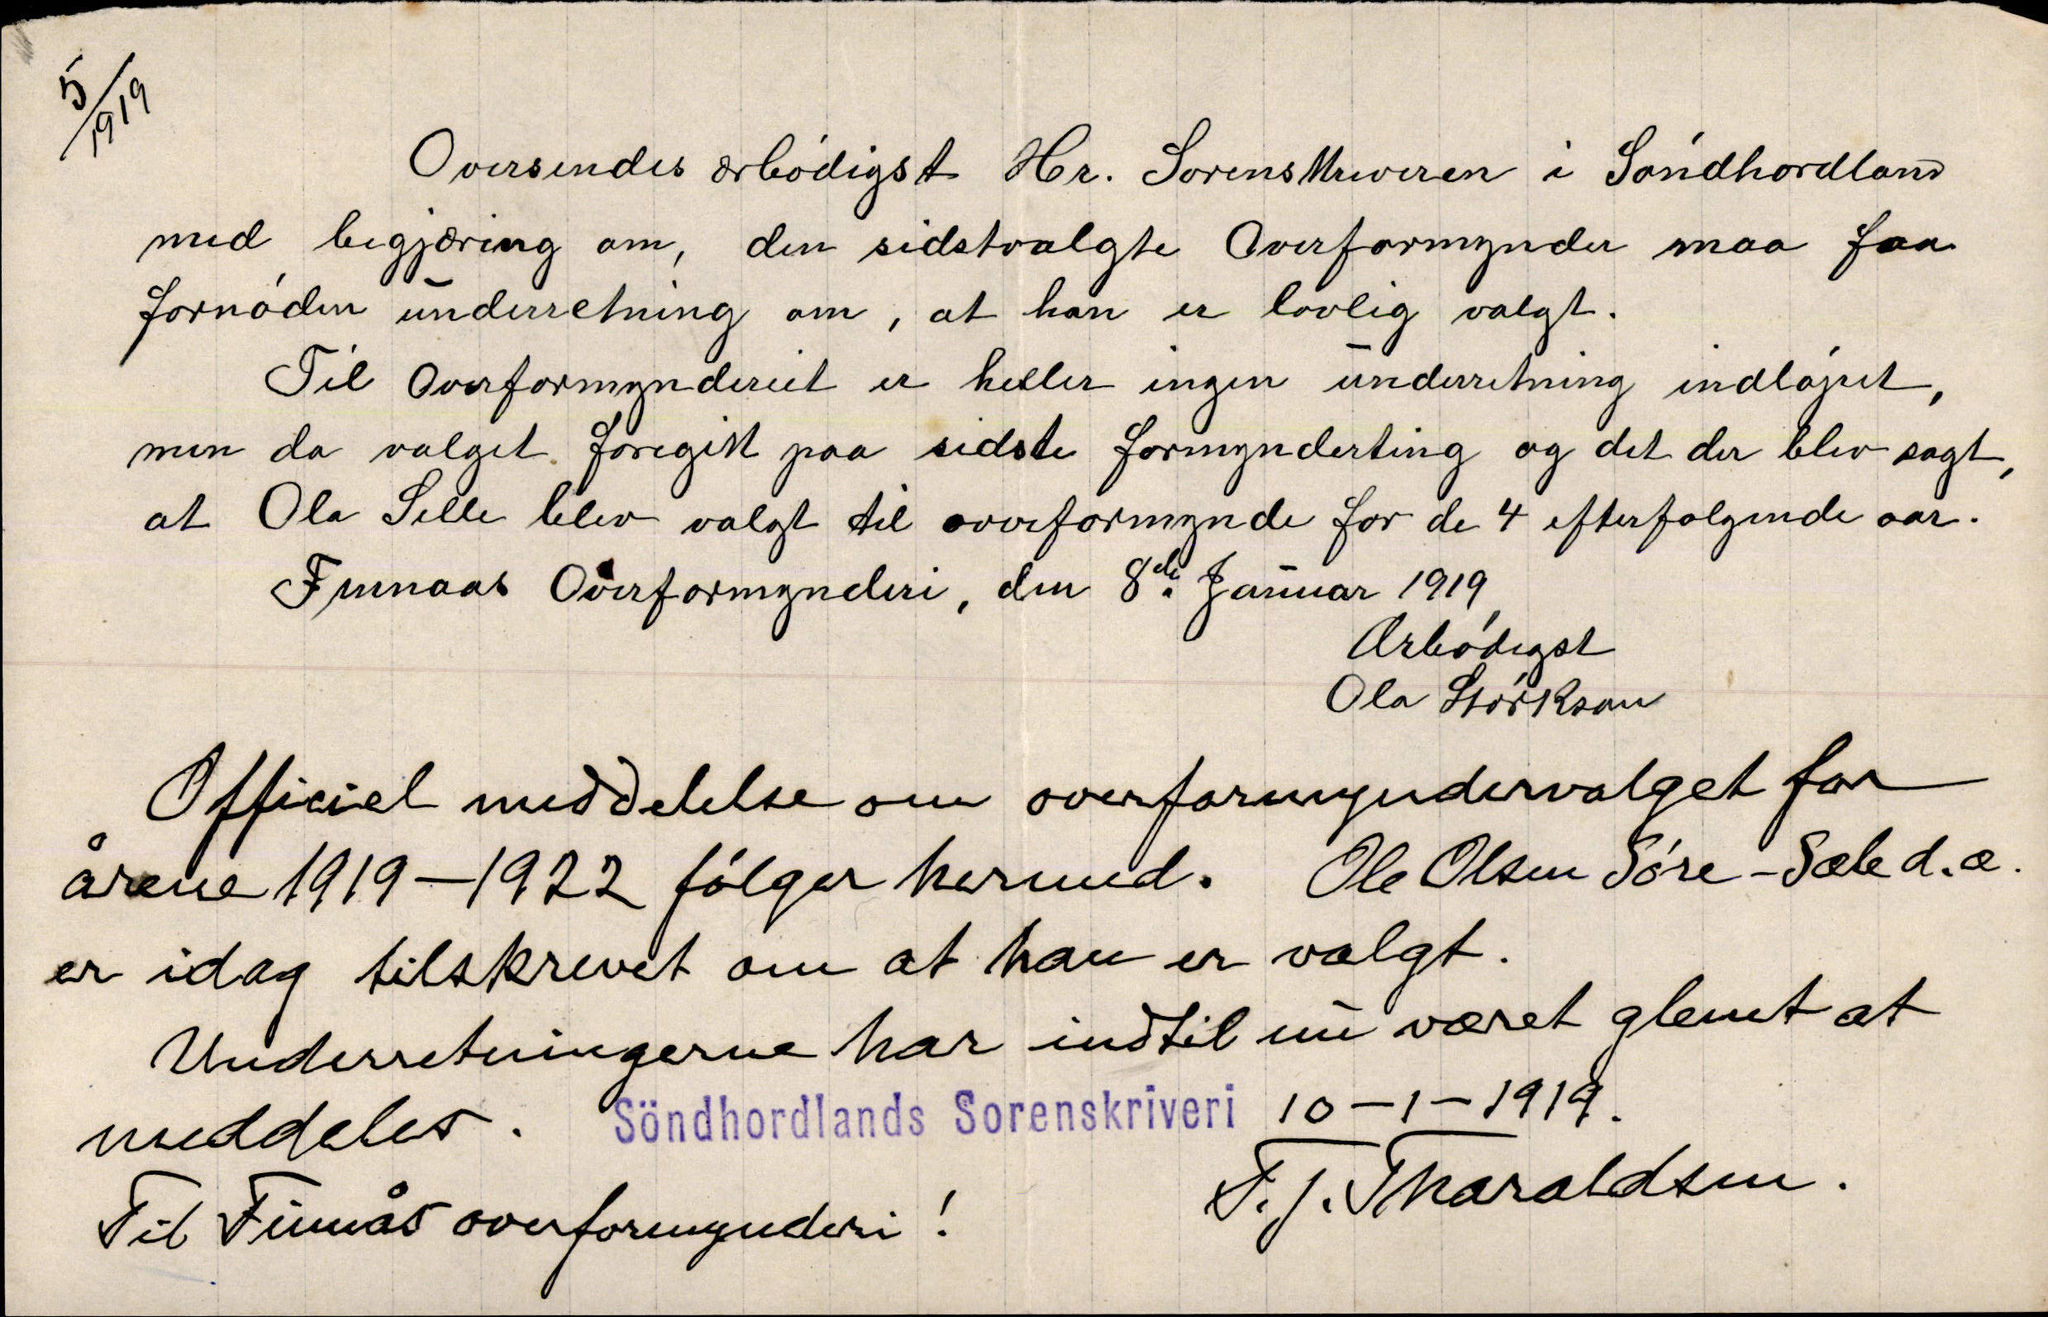 5/1919
Oversendes ærbödigst Hr. Sorenskriveren i Söndhordland
med begjæring om, den sidstvalgte Overformynder maa faa
fornöden underretning om, at han er lovlig valgt.
Til Overformynderiet er heller ingen underretning indlöpet,
men da valget foregikk paa sidste formynderting og det der blev sagt,
at Ola Selle blev valgt til overformynde for de 4 efterfølgende aar.
Finnaas Overformynderi, den 8de Januar 1919
Ærbödigst
Ola Störkson
Officiel meddelelse om overformyndervalget for
årene 1919–1922 fölger hermed. Ole Olsen Söre-Sæle d.æ.
er idag tilskrevet om at han er valgt.
Underretningerne har indtil nu været glemt at
meddeles. Söndhordlands Sorenskriveri 10–1–1919.
Til Finnås overformynderi! F. J. Tharaldsen.